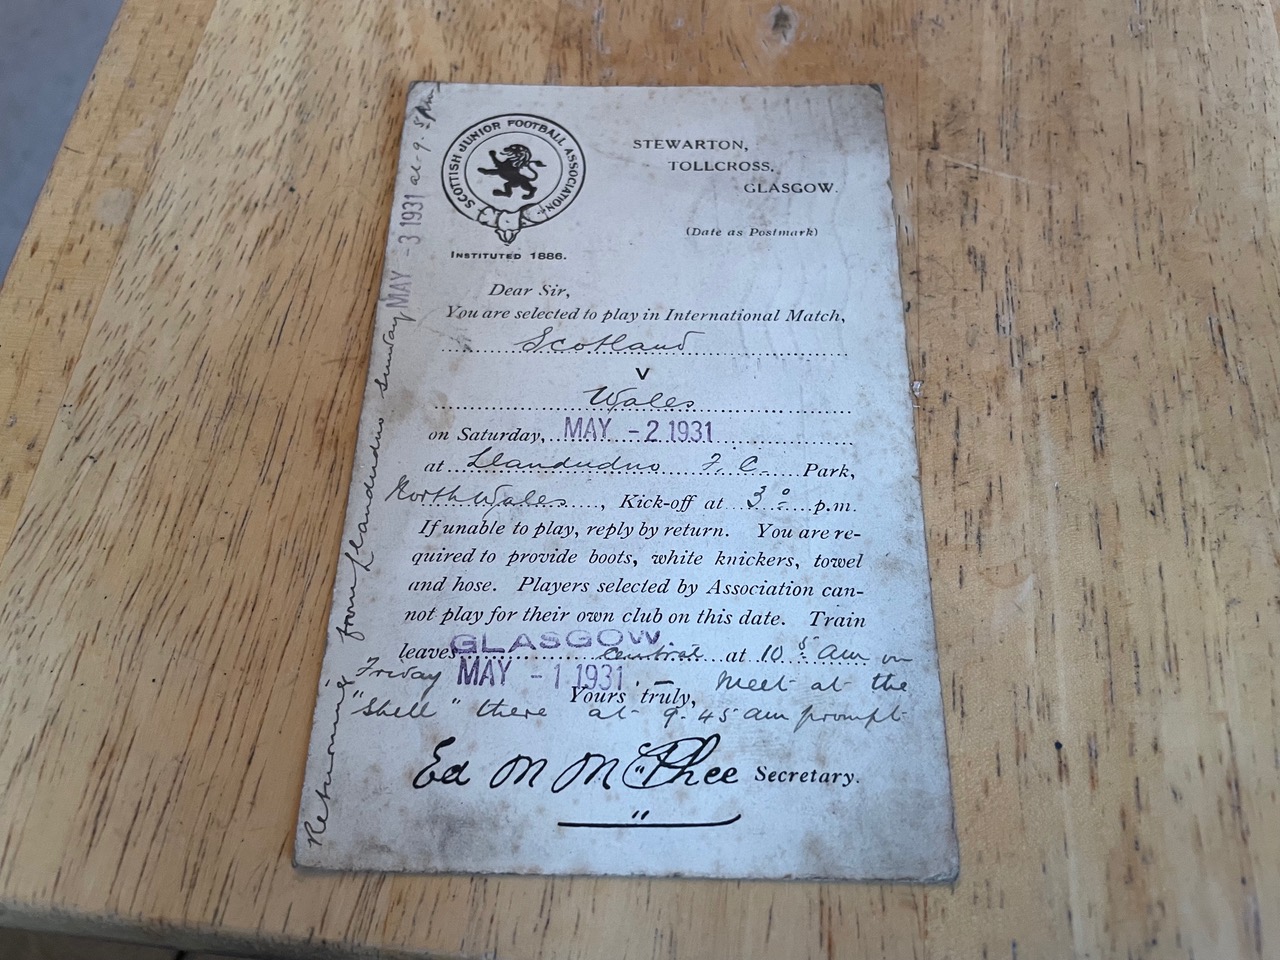 SCOTTISH JUNIOR FOOTBALL ASSOCIATION.
INSTITUTED 1886.
STEWARTON,
TOLLCROSS,
GLASGOW.
(Date as Postmark)
Dear Sir,
You are selected to play in International Match,
Scotland
V
Wales
on Saturday, MAY -2 1931
at Llandudno F.C. Park,
North Wales, Kick-off at 3 p.m.
If unable to play, reply by return. You are re-
quired to provide boots, white knickers, towel
and hose. Players selected by Association can-
not play for their own club on this date. Train
leaves GLASGOW. Central at 10.5 am on
Friday MAY -1 1931. Meet at the
Yours truly,
"Shell" there at 9.45 am prompt
Ed M McPhee Secretary.
Returning from Llandudno Sunday MAY -3 1931 at 9. pm